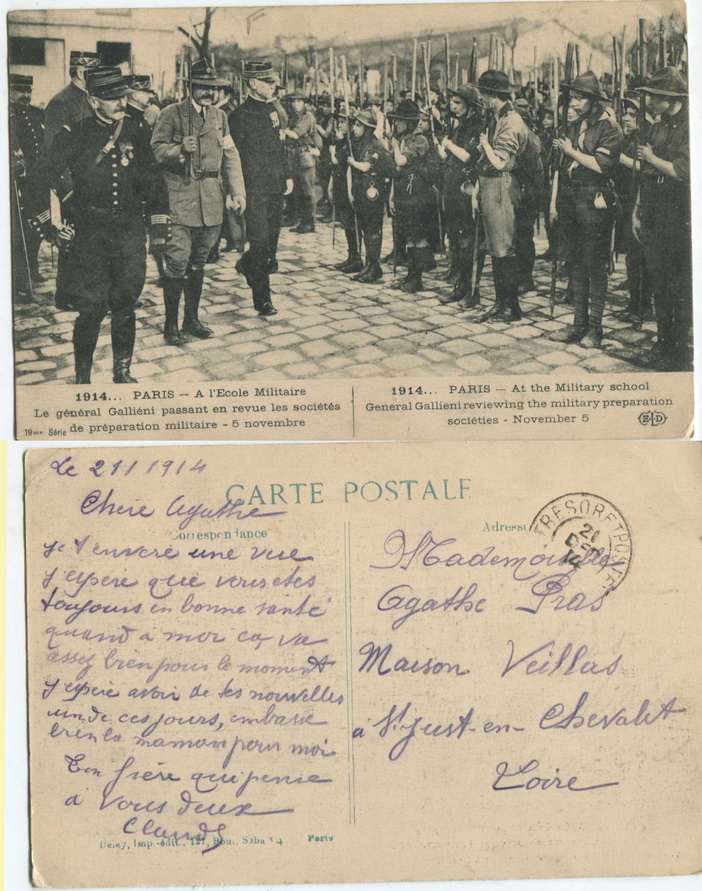 1914... PARIS — A l'Ecole Militaire
Le général Galliéni passant en revue les sociétés
de préparation militaire - 5 novembre
19me Série
1914... PARIS — At the Military school
General Gallieni reviewing the military preparation
sociéties - November 5
E·D
Le 21 1 1914
CARTE POSTALE
Chère Agathe
Correspondance
je t envere une vue
j'espere que vous etes
toujours en bonne santé
quand à moi ça va
assez bien pour le moment
j'espère avoir de tes nouvelles
un de ces jours, embasse
bien la maman pour moi
Ton frère qui pense
à vous deux
Claude
Adresse
TRESOR ET POSTES
Mademoiselle
Agathe Pras
Maison Veillas
à St Just-en-Chevalet
Loire
Deley, Imp.-édit., 127, Bou., Séba Paris